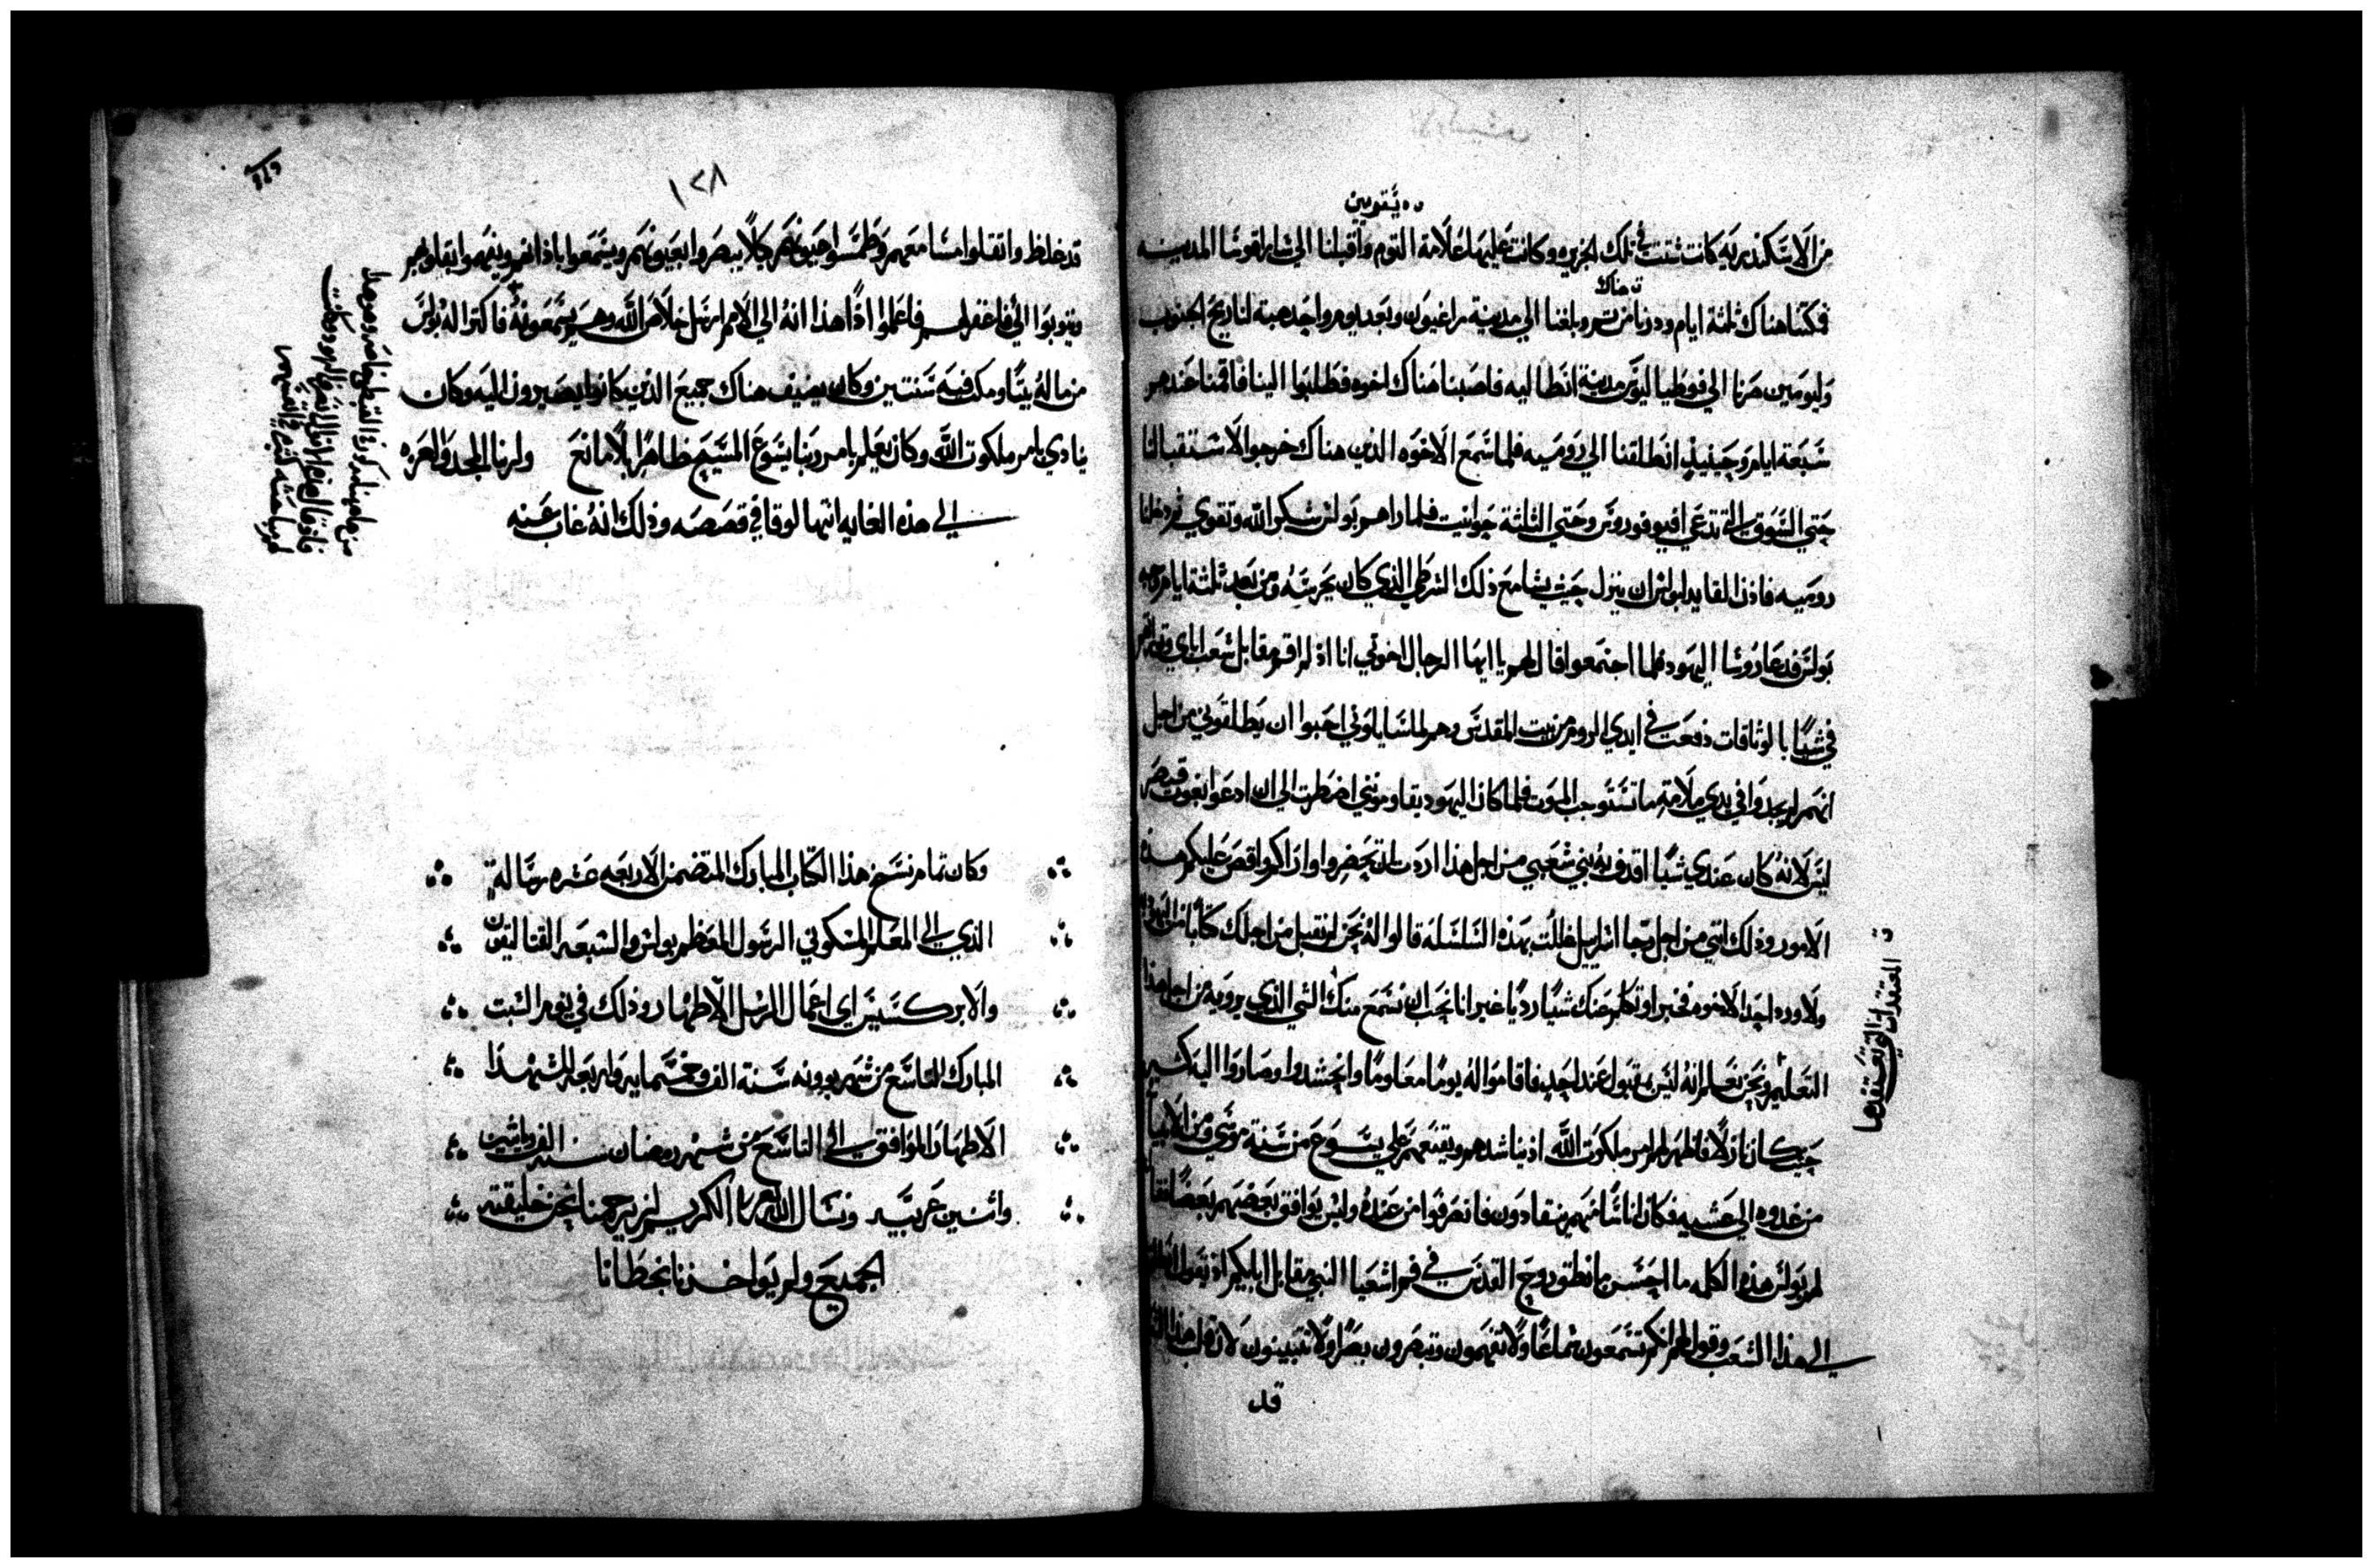 يقويين
من الاسكندريه كانت شتت في تلك الجزيره وكانت عليها علامة التوم واقبلنا الي شاراقوسا المدينه
هناك
فمكثنا هناك ثلثة ايام ودرنا من ثم وبلغنا الي مدينة راغيون وبعد يوم واحد هبت لنا ريح الجنوب
وليومين صرنا الي فوطياليوس مدينة انطاليه فاصبنا هناك اخوه فطلبوا الينا فاقمنا عندهم
سبعة ايام وحينيذ انطلقنا الي روميه فلما سمع الاخوه الذين هناك خرجوا لاستقبالنا
حتي السوق التي تدعي افيوفوروس وحتي الثلثة حوانيت فلما راهم بولس شكر الله وتقوي ثم دخلنا
روميه فاذن القايد لبولس ان ينزل حيث يشا مع ذلك الشرطي الذي كان يحرسه ومن بعد ثلثة ايام وجه
بولس فدعا روسا اليهود فلما اجتمعوا قال لهم يا ايها الرجال اخوتي انا اذ لم اقم مقابل شعب اباي
في شيا بالوثاقات دفعت في ايدي الروم من بيت المقدس وهم لما سايلوني احبوا ان يطلقوني من اجل
انهم لم يجدوا في يدي ملامة ما تستوجب الموت فلما كان اليهود يقاومونني اضطرت الي ان ادعوا بغوث قيصر
ليس لانه كان عندي شيا اقذف به بني شعبي من اجل هذا اردت ان تحضروا واراكم واقص عليكم هذه
الامور وذلك انني من اجل رجا اسراييل ظللت بهذه السلسله قالوا له نحن لم نقبل من اجلك كتابا من اليهوديه
ولا ورد احد الاخوه فخبر او تكلم عنك شيا رديا غير انا نحب ان نسمع منك الشي الذي
التعليم ونحن نعلم انه ليس بمقبول عند احد فاقاموا له يوما معلوما واحتشدوا وصاروا اليه كثير
حيث كان نازلا فاظهر لهم امر ملكوت الله اذ يناشدهم ويقنعهم علي يسوع من سنة موسي ومن الانبيا
من غدوه الي عشيه فكان اناسا منهم ينقادون فانصرفوا من عنده وليس يوافق بعضهم بعضا فقال
لهم بولس هذه الكلمه ما احسن ما نطق روح القدس في فم اشعيا النبي مقابل ابايكم اذ يقول انطلق
الي هذا الشعب وقول لهم انكم تسمعون سماعا ولا تفهمون وتبصرون بصرا ولا تتبينون لان قلب هذا الشعب
قد
المعتقدات التي تعتقدها
١٢٨
قد غلظ واثقلوا مسامعهم وطمسوا عيونهم كيلا يبصروا بعيونهم ويسمعوا باذانهم ويفهموا بقلوبهم
ويتوبوا الي فاغفر لهم فاعلموا اذا هذا انه الي الامم ارسل خلاص الله وهم يسمعونه فاكترا له بولس
من ماله بيتا ومكث فيه سنتين وكان يضيف هناك جميع الذين كانوا يصيرون اليه وكان
ينادي بامر ملكوت الله وكان يعلم بامر ربنا يسوع المسيح ظاهرا بلا مانع ولربنا المجد والعزه
الي هذه الغايه انتها لوقا في قصصه وذلك انه غاب عنه
وكان تمام نسخ هذا الكتاب المبارك المتضمن الاربعه عشره رسالة
الذي الي المعلم المسكوني الرسول المعظم بولس والسبعه القتاليقون
والابركسيس اي اعمال الرسل الاطهار وذلك في يوم السبت
المبارك التاسع من شهر بوونه سنة الف وخمسمايه واربعه للشهدا
الاطهار الموافق الي التاسع من شهر رمضان سنة الف وماتين
واثنين عربيه ونسال الله الكريم ان يرحمنا نحن خليقته
الجميع ولم يواخذنا بخطانا